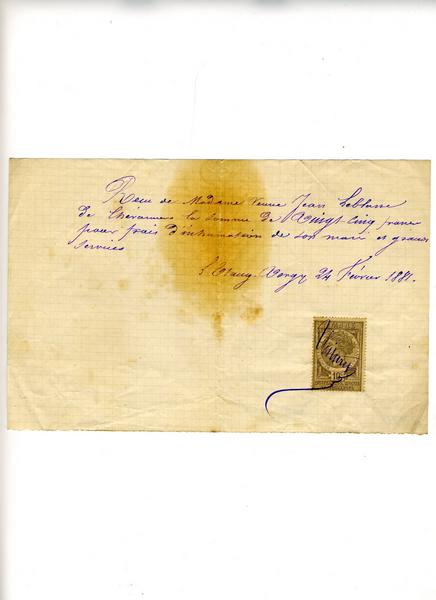 Recu de Madame Veuve Jean Leblanc
de Chevannes la somme de Vingt-cinq francs
pour frais d'inhumation de son mari et grands
services
L'Etang-Vergy 24 Février 1881.
10